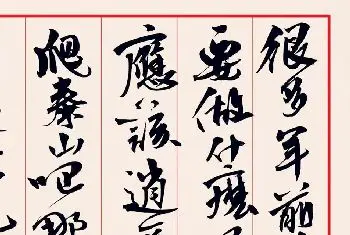 很多年前
要做什麼
應該逍
爬泰山吧那